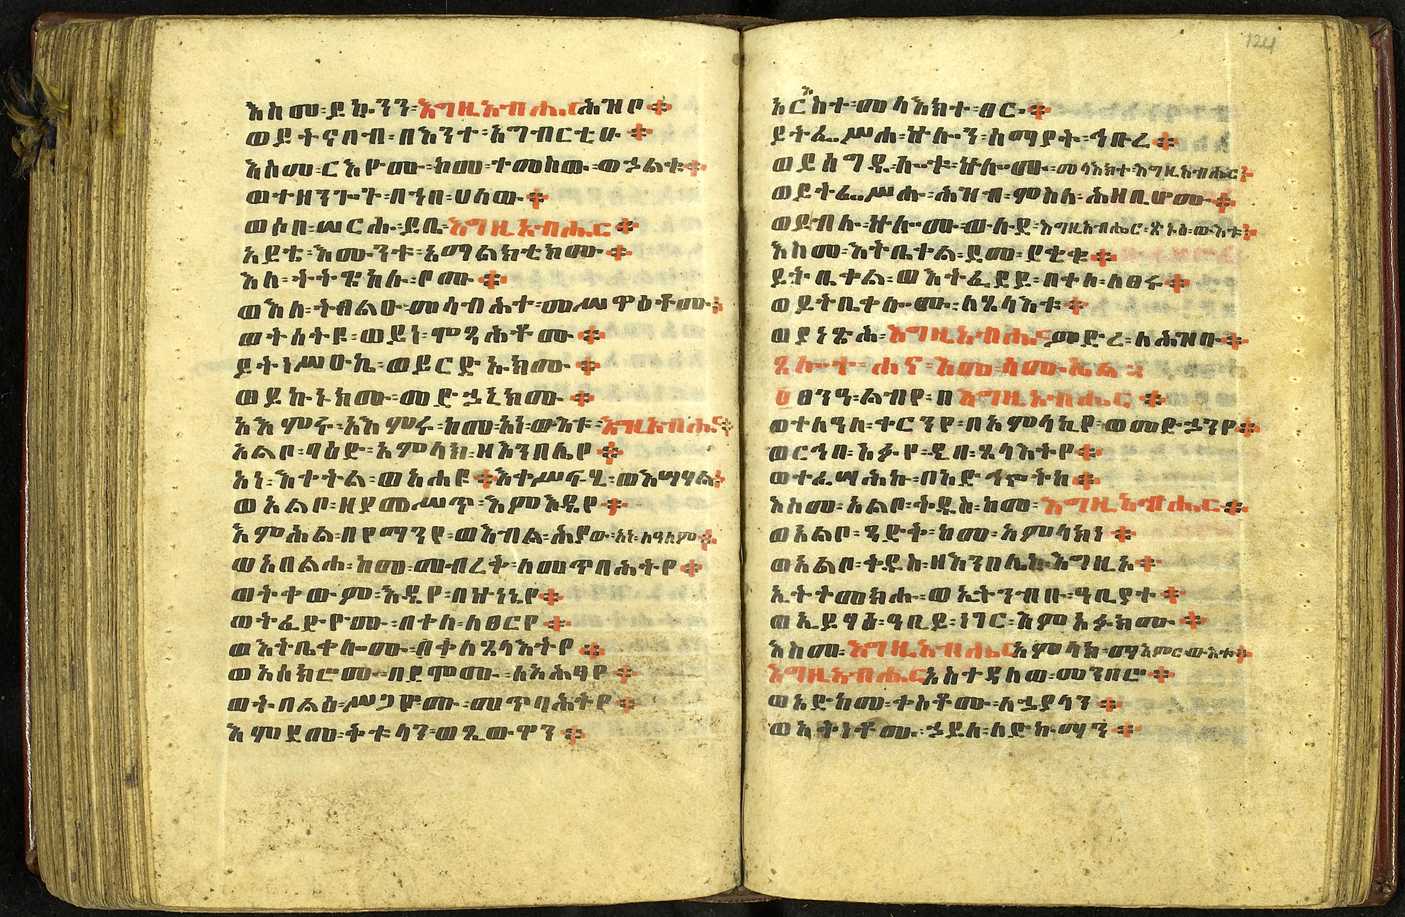 እስመ፡ይኴንን፡እግዚአብሔር ሕዝቦ፨
ወይትናበብ፡በእንተ፡አግብርቲሁ፨
እስመ፡ርእዮሙ፡ከመ፡ተመስወ፡ወኃልቁ፨
ወተዘንጐጉ፡በኀበ፡ሀለው፨
ወሶበ፡ሠርሐ፡ይቤ፡እግዚአብሔር፨
አይቴ፡እሙንቱ፡አማልክቲክሙ፨
እለ፡ትትዌከሉ፡ቦሙ፨
ወእለ፡ትበልዑ፡መሳብሕተ፡መሥዋዕቶሙ፨
ወትሰትዩ፡ወይነ፡ሞጻሕቶሙ፨
ይትነሥኡኬ፡ወይርድኡክሙ፨
ወይኩኑክሙ፡መድኃኒክሙ፨
አእምሩ፡አእምሩ፡ከመ፡አነ፡ውእቱ፡እግዚአብሔር፨
አልቦ፡ባዕድ፡አምላክ፡ዘእንበሌየ፨
አነ፡እቀትል፡ወአሐዩ፨እቀሥፍሂ፡ወእሣሃል፨
ወአልቦ፡ዘያመሥጥ፡እምእዴየ፨
እምሕል፡በየማንየ፡ወእብል፡ሕያው፡አነ፡ለዓለም፨
ወአበልሐ፡ከመ፡መብረቅ፡ለመጥባሕትየ፨
ወትተውም፡እዴየ፡በኵነኔየ፨
ወትፈድዮሙ፡በቀለ፡ለፀርየ፨
ወእትቤቀሎሙ፡በቀለ፡ጸላእትየ፨
ወአሰክሮሙ፡በደሞሙ፡ለአሕፃየ፨
ወትበልዕ፡ሥጋዮሙ፡መጥባሕትየ፨
እምደመ፡ቅቱላን፡ወጼውዋን፨
124
አርእስተ፡መላእክተ፡ፀር፨
ይትፌሥሐ፡ኵሉን፡ሰማያት፡ኅቡረ፨
ወይሰግዱ፡ሎቱ፡ኵሎሙ፡መላእክተ፡እግዚአብሔር፨
ወይትፌሥሑ፡አሕዛብ፡ምስለ፡ሕዘቢሆሙ፨
ወይብሉ፡ኵሎሙ፡ውሉደ፡እግዚአብሔር፡ጽኑዕ፡ውእቱ፨
እስመ፡እትቤቀል፡ደመ፡ደቂቁ፨
ይትቤቀል፡ወእትፈደይ፡በቀለ፡ለፀሩ፨
ወይትቤቀሎሙ፡ለጸላእቱ፨
ወያነጽሕ፡እግዚአብሔር መድረ፡ለሕዝቡ፨
ጸሎተ፡ሐና፡እመ፡ሳሙኤል፡
ፀንዓ፡ልብየ፡በእግዚአብሔር፨
ወተለዓለ፡ቀርንየ፡በአምላኪየ፡ወመድኃንየ፨
ወርኅበ፡አፉየ፡ዲበ፡ጸላእትየ፨
ወተፈሣሕኩ፡በአድኅኖትከ፨
እስመ፡አልቦ፡ቅዱስ፡ከመ፡እግዚአብሔር፨
ወአልቦ፡ጻድቅ፡ከመ፡አምላክነ፨
ወአልቦ፡ቅዱስ፡ዘእንበሌከ፡እግዚኦ፨
ኢትትመክሑ፡ወኢትንብቡ፡ዓቢያተ፨
ወኢይፃዕ፡ዓቢይ፡ነገር፡እምአፉክሙ፨
እስመ፡እግዚአብሔር አምላክ፡ማእምር፡ውእቱ፨
እግዚአብሔር አስተዳለወ፡መንበሮ፨
ወአድከመ፡ቀስቶሙ፡ለኃያላን፨
ወአቅነቶሙ፡ኃይለ፡ለድኩማን፨